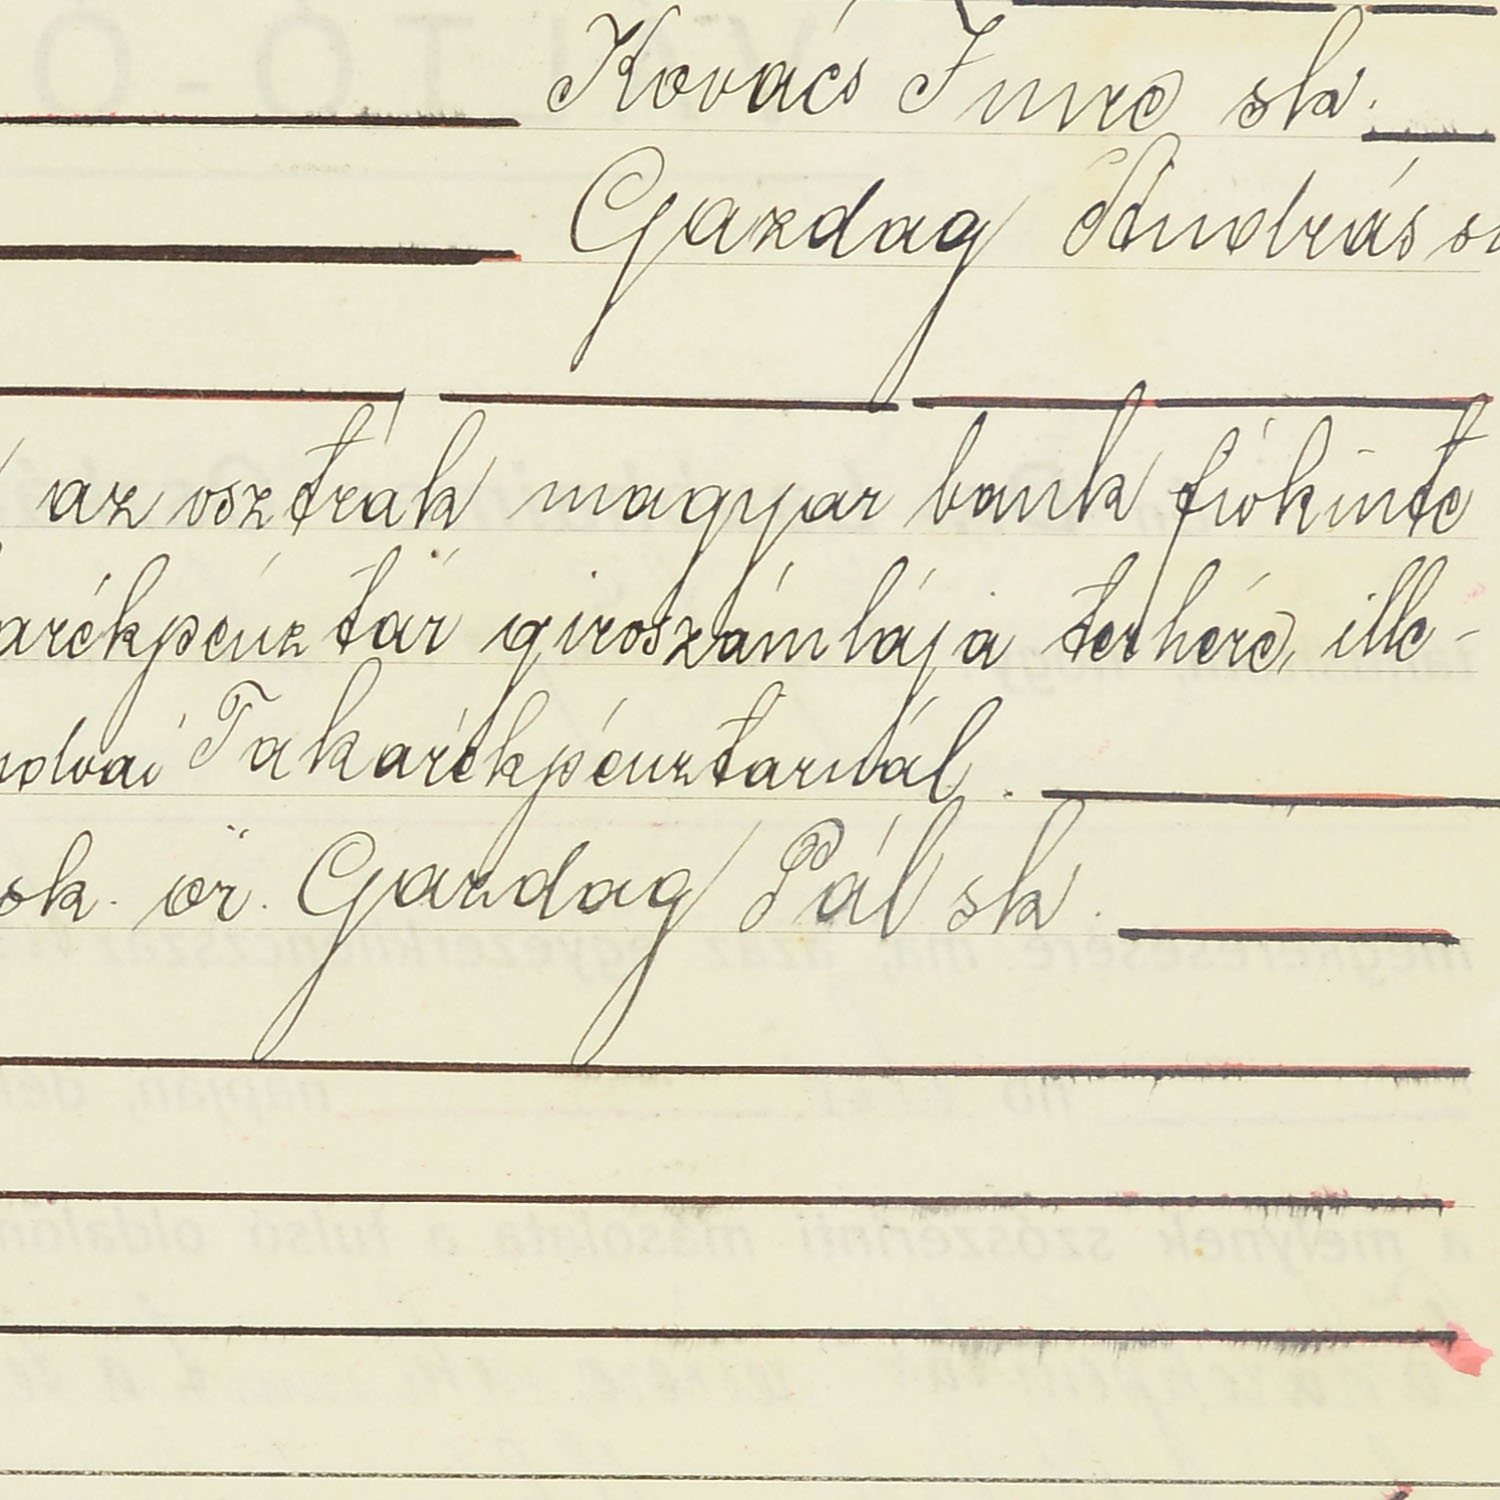 Kovács Imre sk.
Gazdag András
az osztrák magyar bank fiókinté
arékpénztár giroszámlája terhére, ille-
ndvai Takarékpénztárnál.
sk. özv. Gazdag Pál sk.